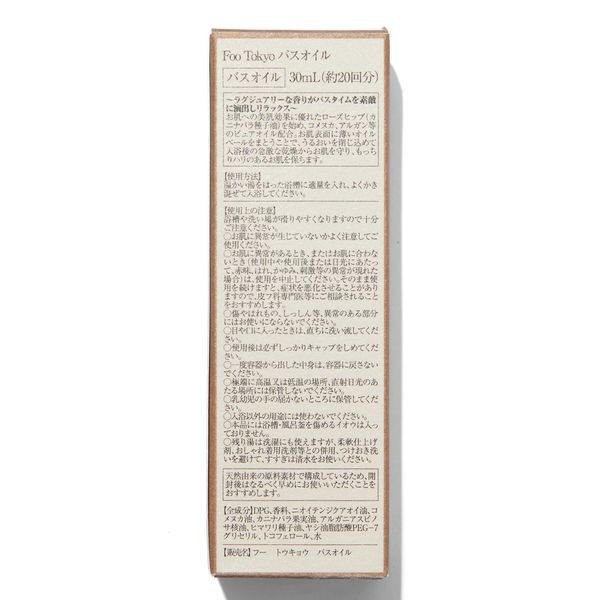 Foo Tokyo バスオイル
バスオイル 30mL（約20回分）
～ラグジュアリーな香りがバスタイムを素敵
に演出しリラックス～
お肌への美肌効果に優れたローズヒップ（カ
ニナバラ種子油）を始め、コメヌカ、アルガン等
のピュアオイル配合。お肌表面に薄いオイル
ベールをまとうことで、うるおいを閉じ込めて
入浴後の急激な乾燥からお肌を守り、もっち
りハリのあるお肌を保ちます。
【使用方法】
温かい湯をはった浴槽に適量を入れ、よくかき
混ぜて入浴してください。
【使用上の注意】
浴槽や洗い場が滑りやすくなりますので十分
ご注意ください。
○お肌に異常が生じていないかよく注意してご
使用ください。
○お肌に異常があるとき、またはお肌に合わな
いとき（使用中や使用後または日光にあたっ
て、赤味、はれ、かゆみ、刺激等の異常が現れた
場合）は、使用を中止してください。そのまま使用
を続けますと、症状を悪化させることがあり
ますので、皮フ科専門医等にご相談されること
をおすすめします。
○傷やはれもの、しっしん等、異常のある部分
にはお使いにならないでください。
○目や口に入ったときは、直ちに洗い流してくだ
さい。
○使用後は必ずしっかりキャップをしめてくだ
さい。
○一度容器から出した中身は、容器に戻さない
でください。
○極端に高温又は低温の場所、直射日光のあ
たる場所には保管しないでください。
○乳幼児の手の届かないところに保管してくだ
さい。
○入浴以外の用途には使わないでください。
○本品には浴槽・風呂釜を傷めるイオウは入っ
ておりません。
○残り湯は洗濯にも使えますが、柔軟仕上げ
剤、おしゃれ着用洗剤等との併用、つけおき洗
いを避けて、すすぎは清水をお使いください。
天然由来の原料素材で構成しているため、開
封後はなるべく早めにお使いいただくことを
おすすめします。
【全成分】DPG、香料、ニオイテンジクアオイ油、コ
メヌカ油、カニナバラ果実油、アルガニアスピノ
サ核油、ヒマワリ種子油、ヤシ油脂肪酸PEG-7
グリセリル、トコフェロール、水
【販売名】フー トウキョウ バスオイル